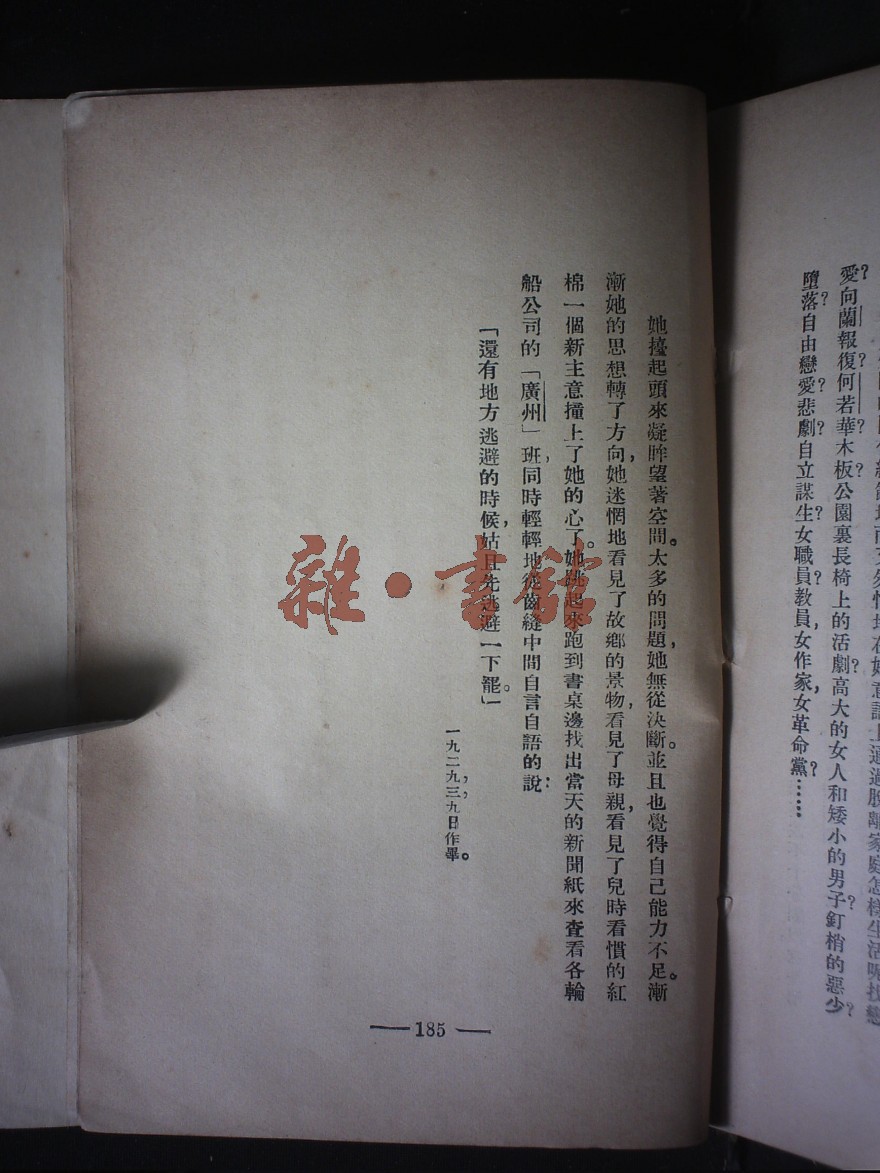 愛?向蘭報復?何若華?木板公園裏長椅上的活劇?高大的女人和矮小的男子?釘梢的惡少?
墮落?自由戀愛?悲劇?自立謀生?女職員?教員,女作家,女革命黨?……
她擡起頭來凝眸望著空間。太多的問題,她無從決斷。並且也覺得自己能力不足。漸
漸她的思想轉了方向,她迷惘地看見了故鄉的景物,看見了母親,看見了兒時看慣的紅
棉一個新主意撞上了她的心了。她跳起來跑到書桌邊找出當天的新聞紙來查看各輪
船公司的「廣州」班,同時輕輕地從齒縫中間自言自語的說:
「還有地方逃避的時候,姑且先逃避一下罷。」
一九二九,三,九日作畢。
— 185 —
雜·書館